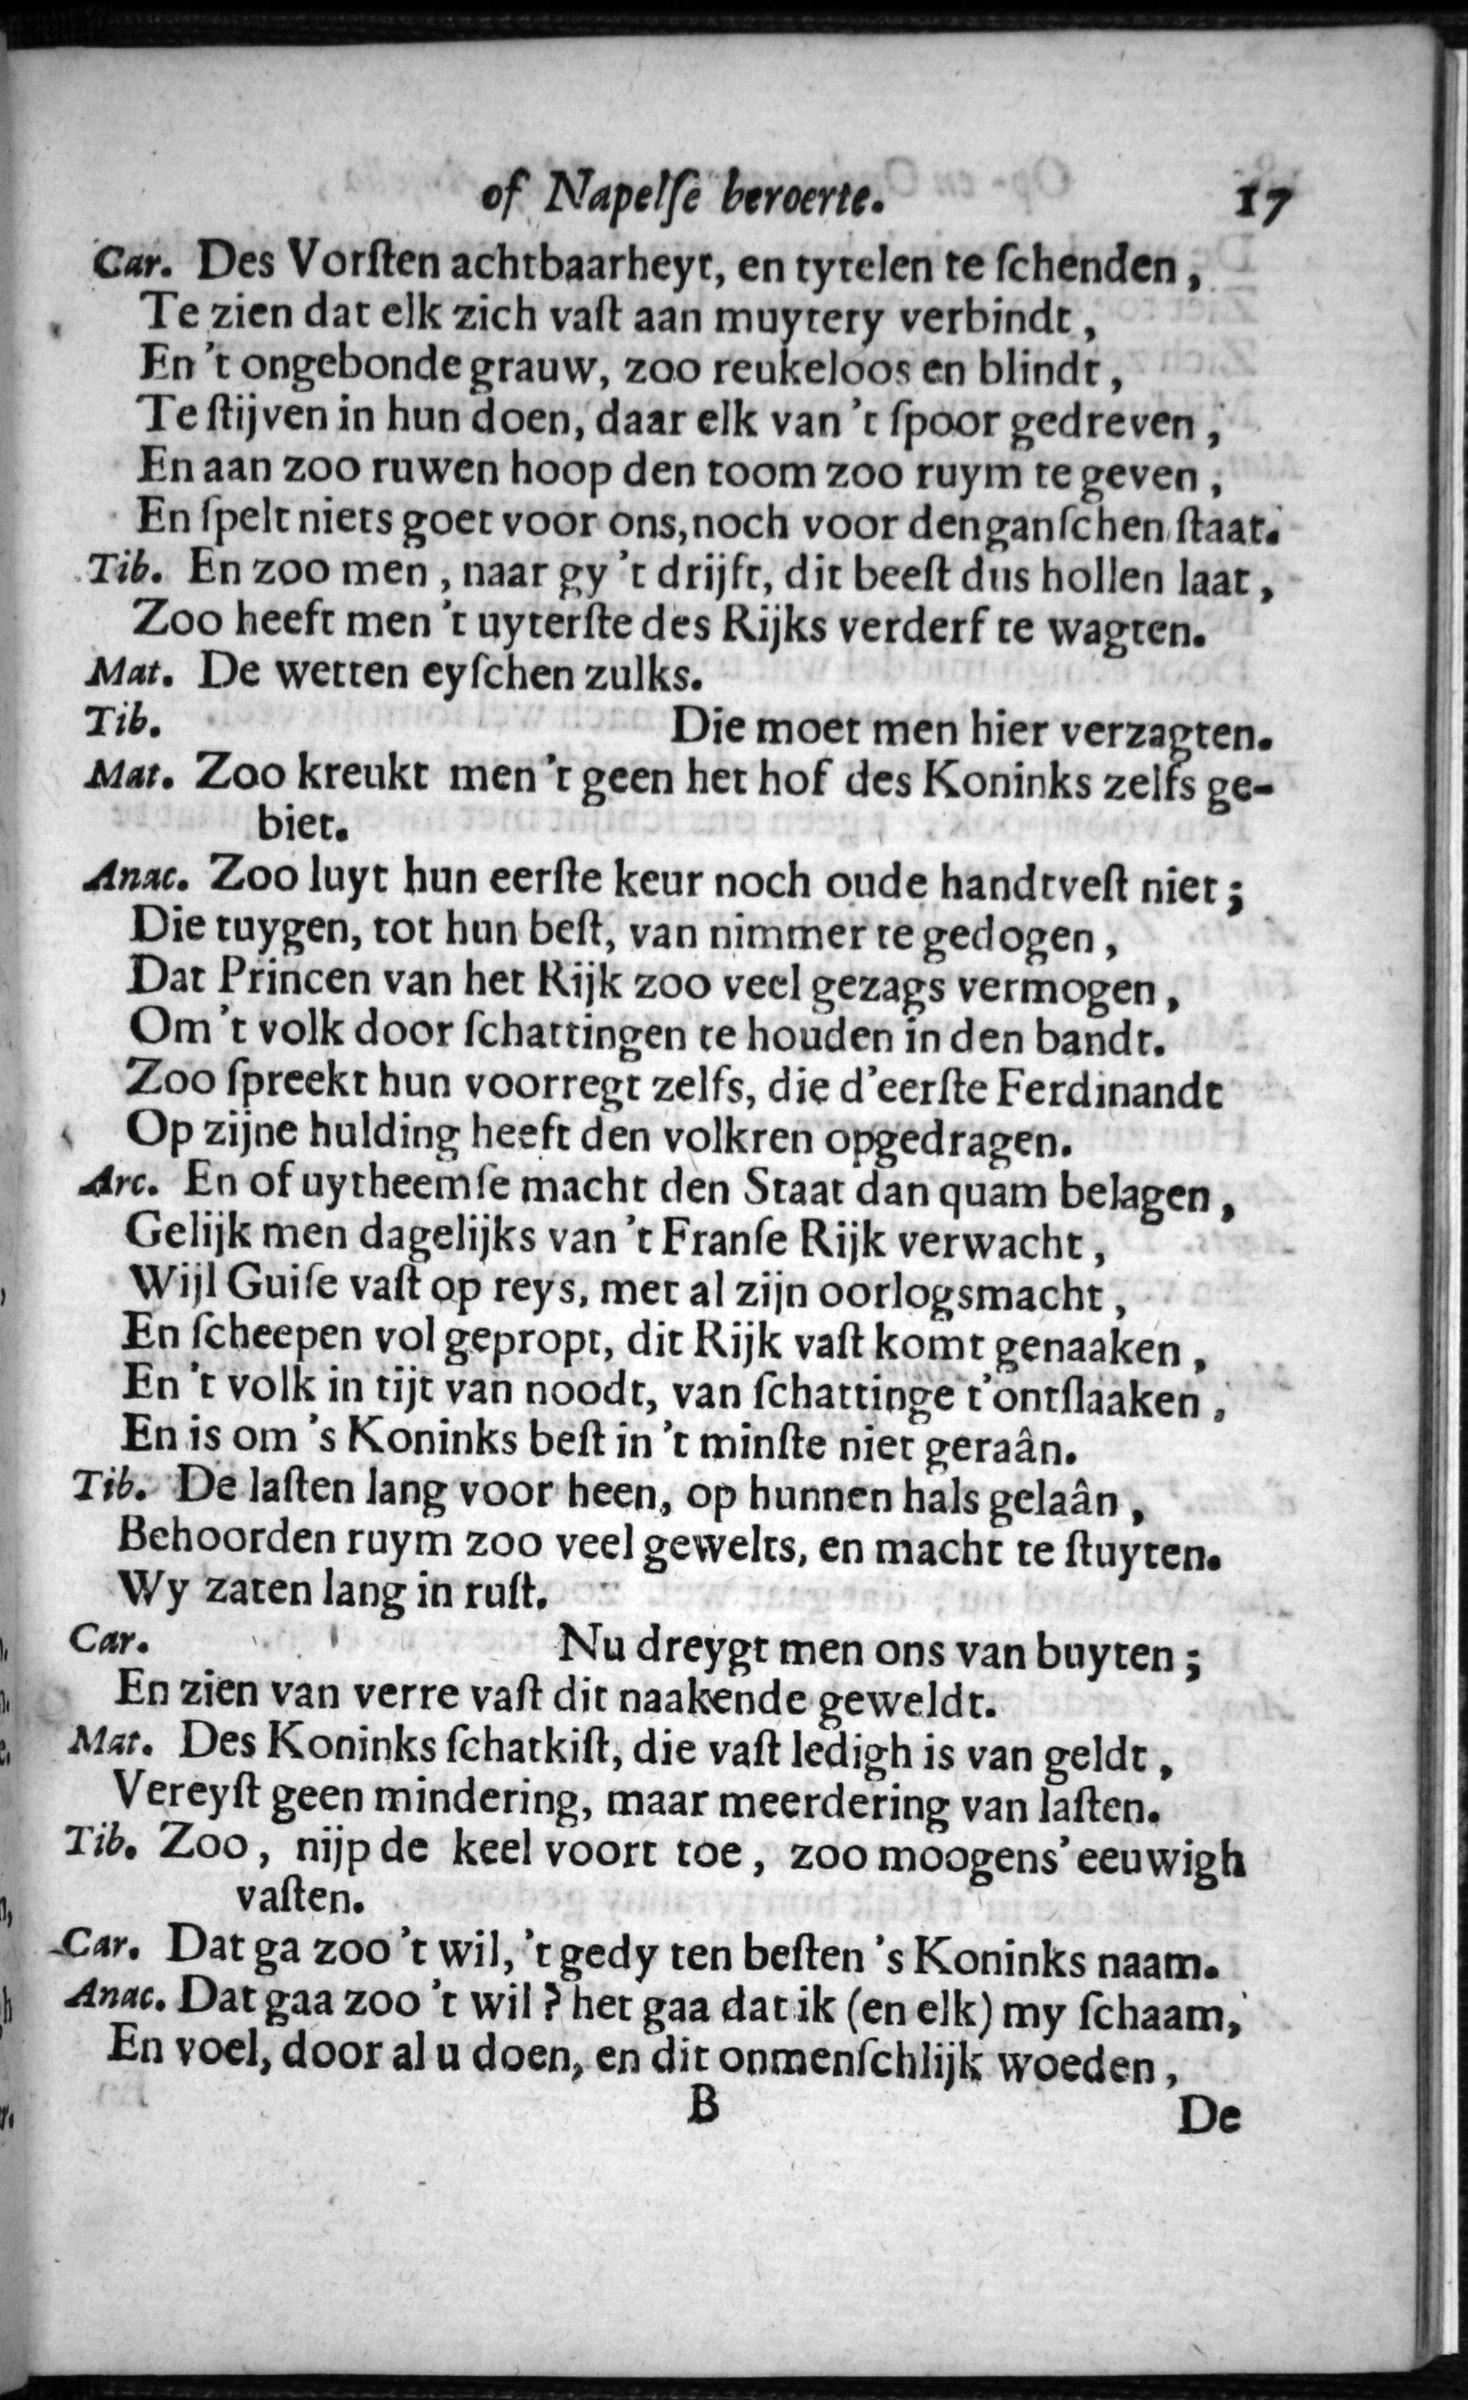 of Napelſe beroerte. 17
Car. Des Vorſten achtbaarheyt, en tytelen te ſchenden,
Te zien dat elk zich vaſt aan muytery verbindt,
En 't ongebonde grauw, zoo reukeloos en blindt,
Te ſtijven in hun doen, daar elk van 't ſpoor gedreven,
En aan zoo ruwen hoop den toom zoo ruym te geven,
En ſpelt niets goet voor ons, noch voor den ganſchen ſtaat.
Tib. En zoo men, naar gy 't drijft, dit beeſt dus hollen laat,
Zoo heeft men 't uyterſte des Rijks verderf te wagten.
Mat. De wetten eyſchen zulks.
Tib. Die moet men hier verzagten.
Mat. Zoo kreukt men 't geen het hof des Koninks zelfs ge-
biet.
Anac. Zoo luyt hun eerſte keur noch oude handtveſt niet;
Die tuygen, tot hun beſt, van nimmer te gedogen,
Dat Princen van het Rijk zoo veel gezags vermogen,
Om 't volk door ſchattingen te houden in den bandt.
Zoo ſpreekt hun voorregt zelfs, die d'eerſte Ferdinandt
Op zijne hulding heeft den volkren opgedragen.
Arc. En of uytheemſe macht den Staat dan quam belagen,
Gelijk men dagelijks van 't Franſe Rijk verwacht,
Wijl Guiſe vaſt op reys, met al zijn oorlogsmacht,
En ſcheepen vol gepropt, dit Rijk vaſt komt genaaken,
En 't volk in tijt van noodt, van ſchattinge t'ontſlaaken,
En is om 's Koninks beſt in 't minſte niet geraân.
Tib. De laſten lang voor heen, op hunnen hals gelaân,
Behoorden ruym zoo veel gewelts, en macht te ſtuyten.
Wy zaten lang in ruſt.
Car. Nu dreygt men ons van buyten;
En zien van verre vaſt dit naakende geweldt.
Mat. Des Koninks ſchatkiſt, die vaſt ledigh is van geldt,
Vereyſt geen mindering, maar meerdering van laſten.
Tib. Zoo, nijp de keel voort toe, zoo moogens' eeuwigh
vaſten.
Car. Dat ga zoo 't wil, 't gedy ten beſten 's Koninks naam.
Anac. Dat gaa zoo 't wil? het gaa dat ik (en elk) my ſchaam,
En voel, door al u doen, en dit onmenſchlijk woeden,
B De